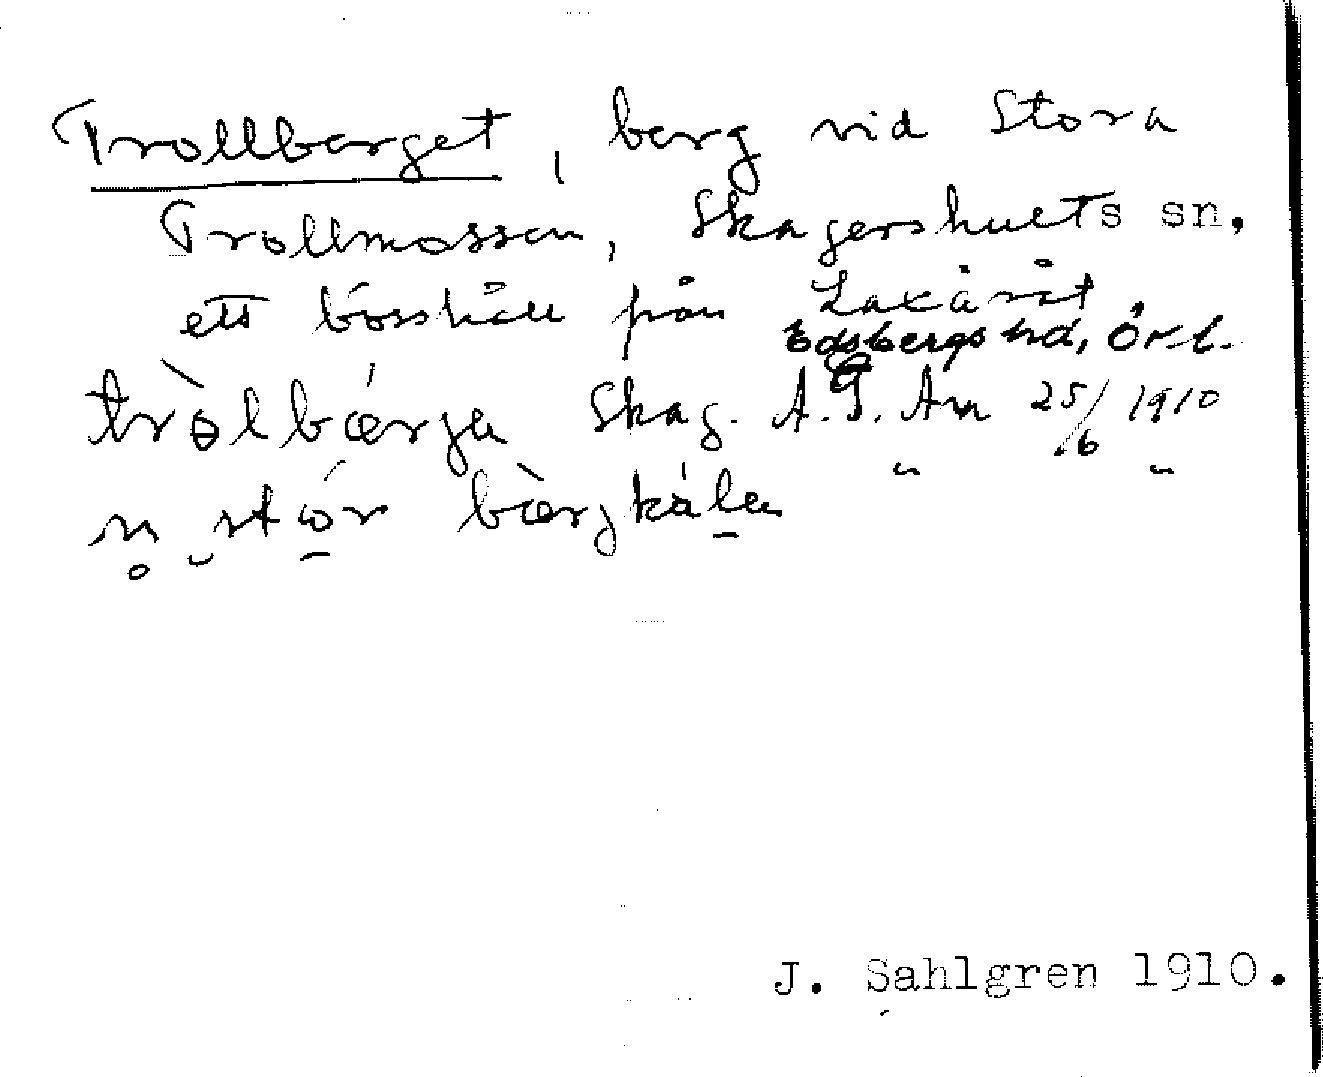 Trollberget, berg vid Stora
Trollmossen, Skagershults sn.
ett bösshåll från Laxåvät.
Edsbergs hd, Ör.l.
tròlbærja Skag. A.G. An 25/6 1910
n̥ stor bærjkála " "
J. Sahlgren 1910.